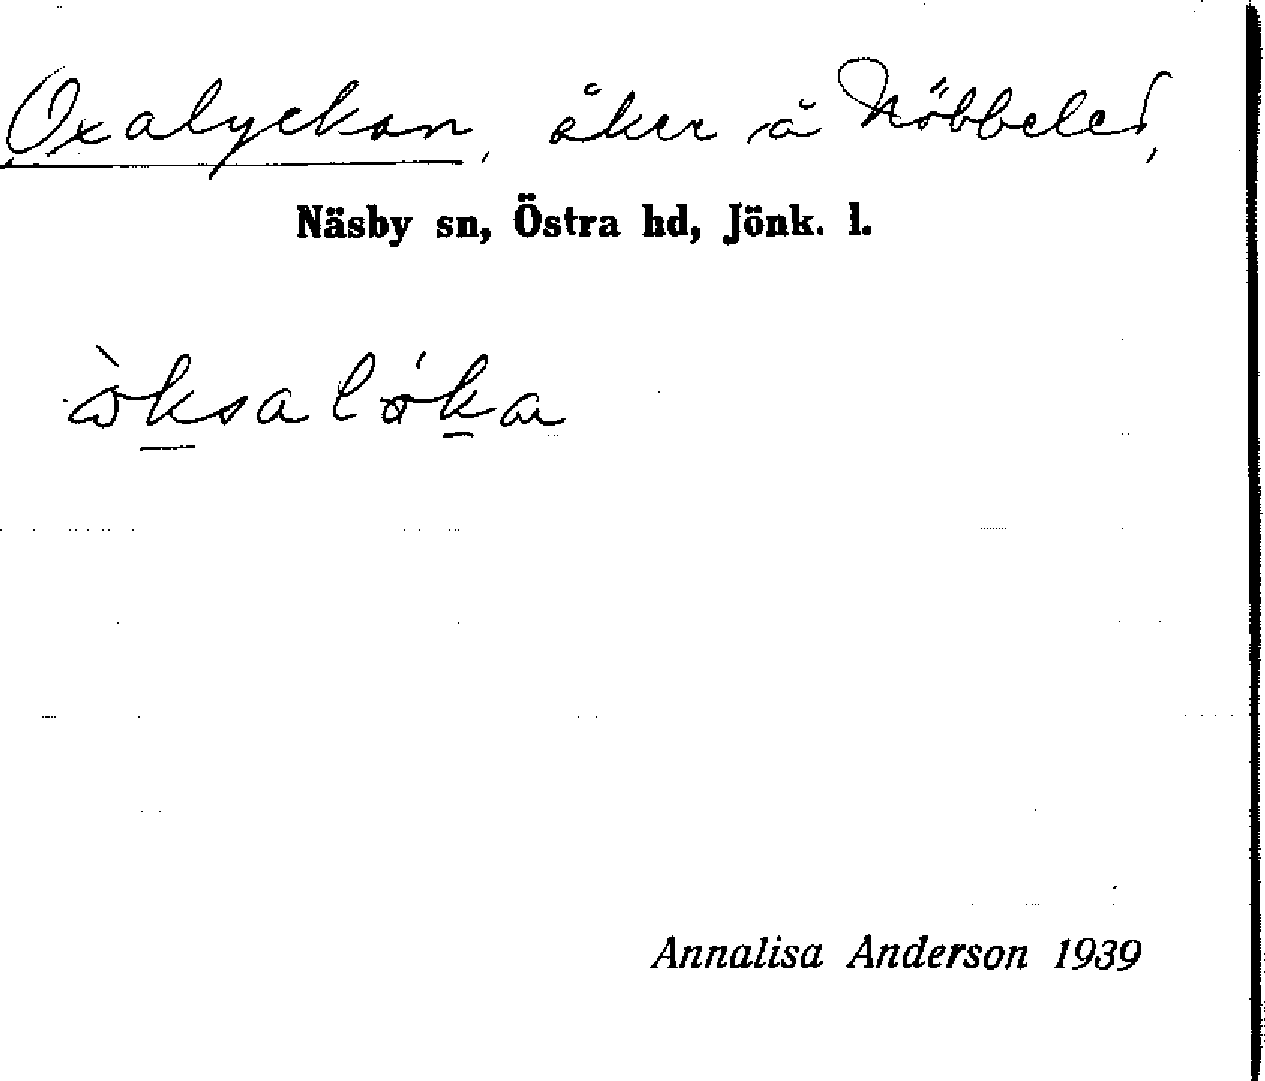 Oxalyckan, åker å Nöbbeled,
Näsby sn, Östra hd, Jönk. l.
Annalisa Anderson 1939